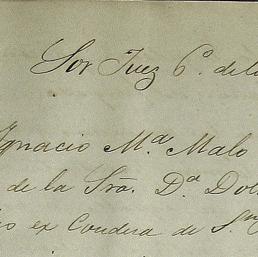 Sor Juez 6º. de l
Ignacio Mª. Malo
de la Sra. Dª Dol
ex Condesa de S.